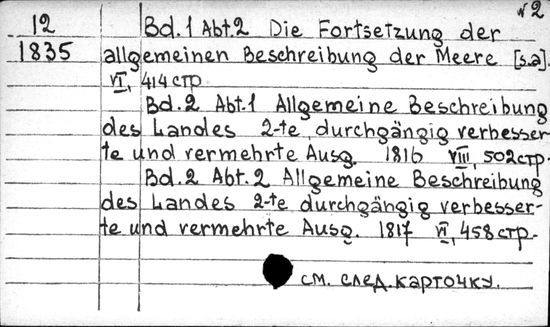 №2
12 Bd. 1 Abt. 2 Die Fortsetzung der
1835 allgemeinen Beschreibung der Meere [s.a].
VI, 414 стр
Bd. 2 Abt. 1 Allgemeine Beschreibung
des Landes 2-te, durchgängig verbesser-
te und vermehrte Ausg. 1816 VIII, 502 стр.
Bd. 2 Abt. 2 Allgemeine Beschreibung
des Landes 2-te durchgängig verbesser-
te und vermehrte Ausg. 1817 VI, 458 стр.
см. след. карточку.